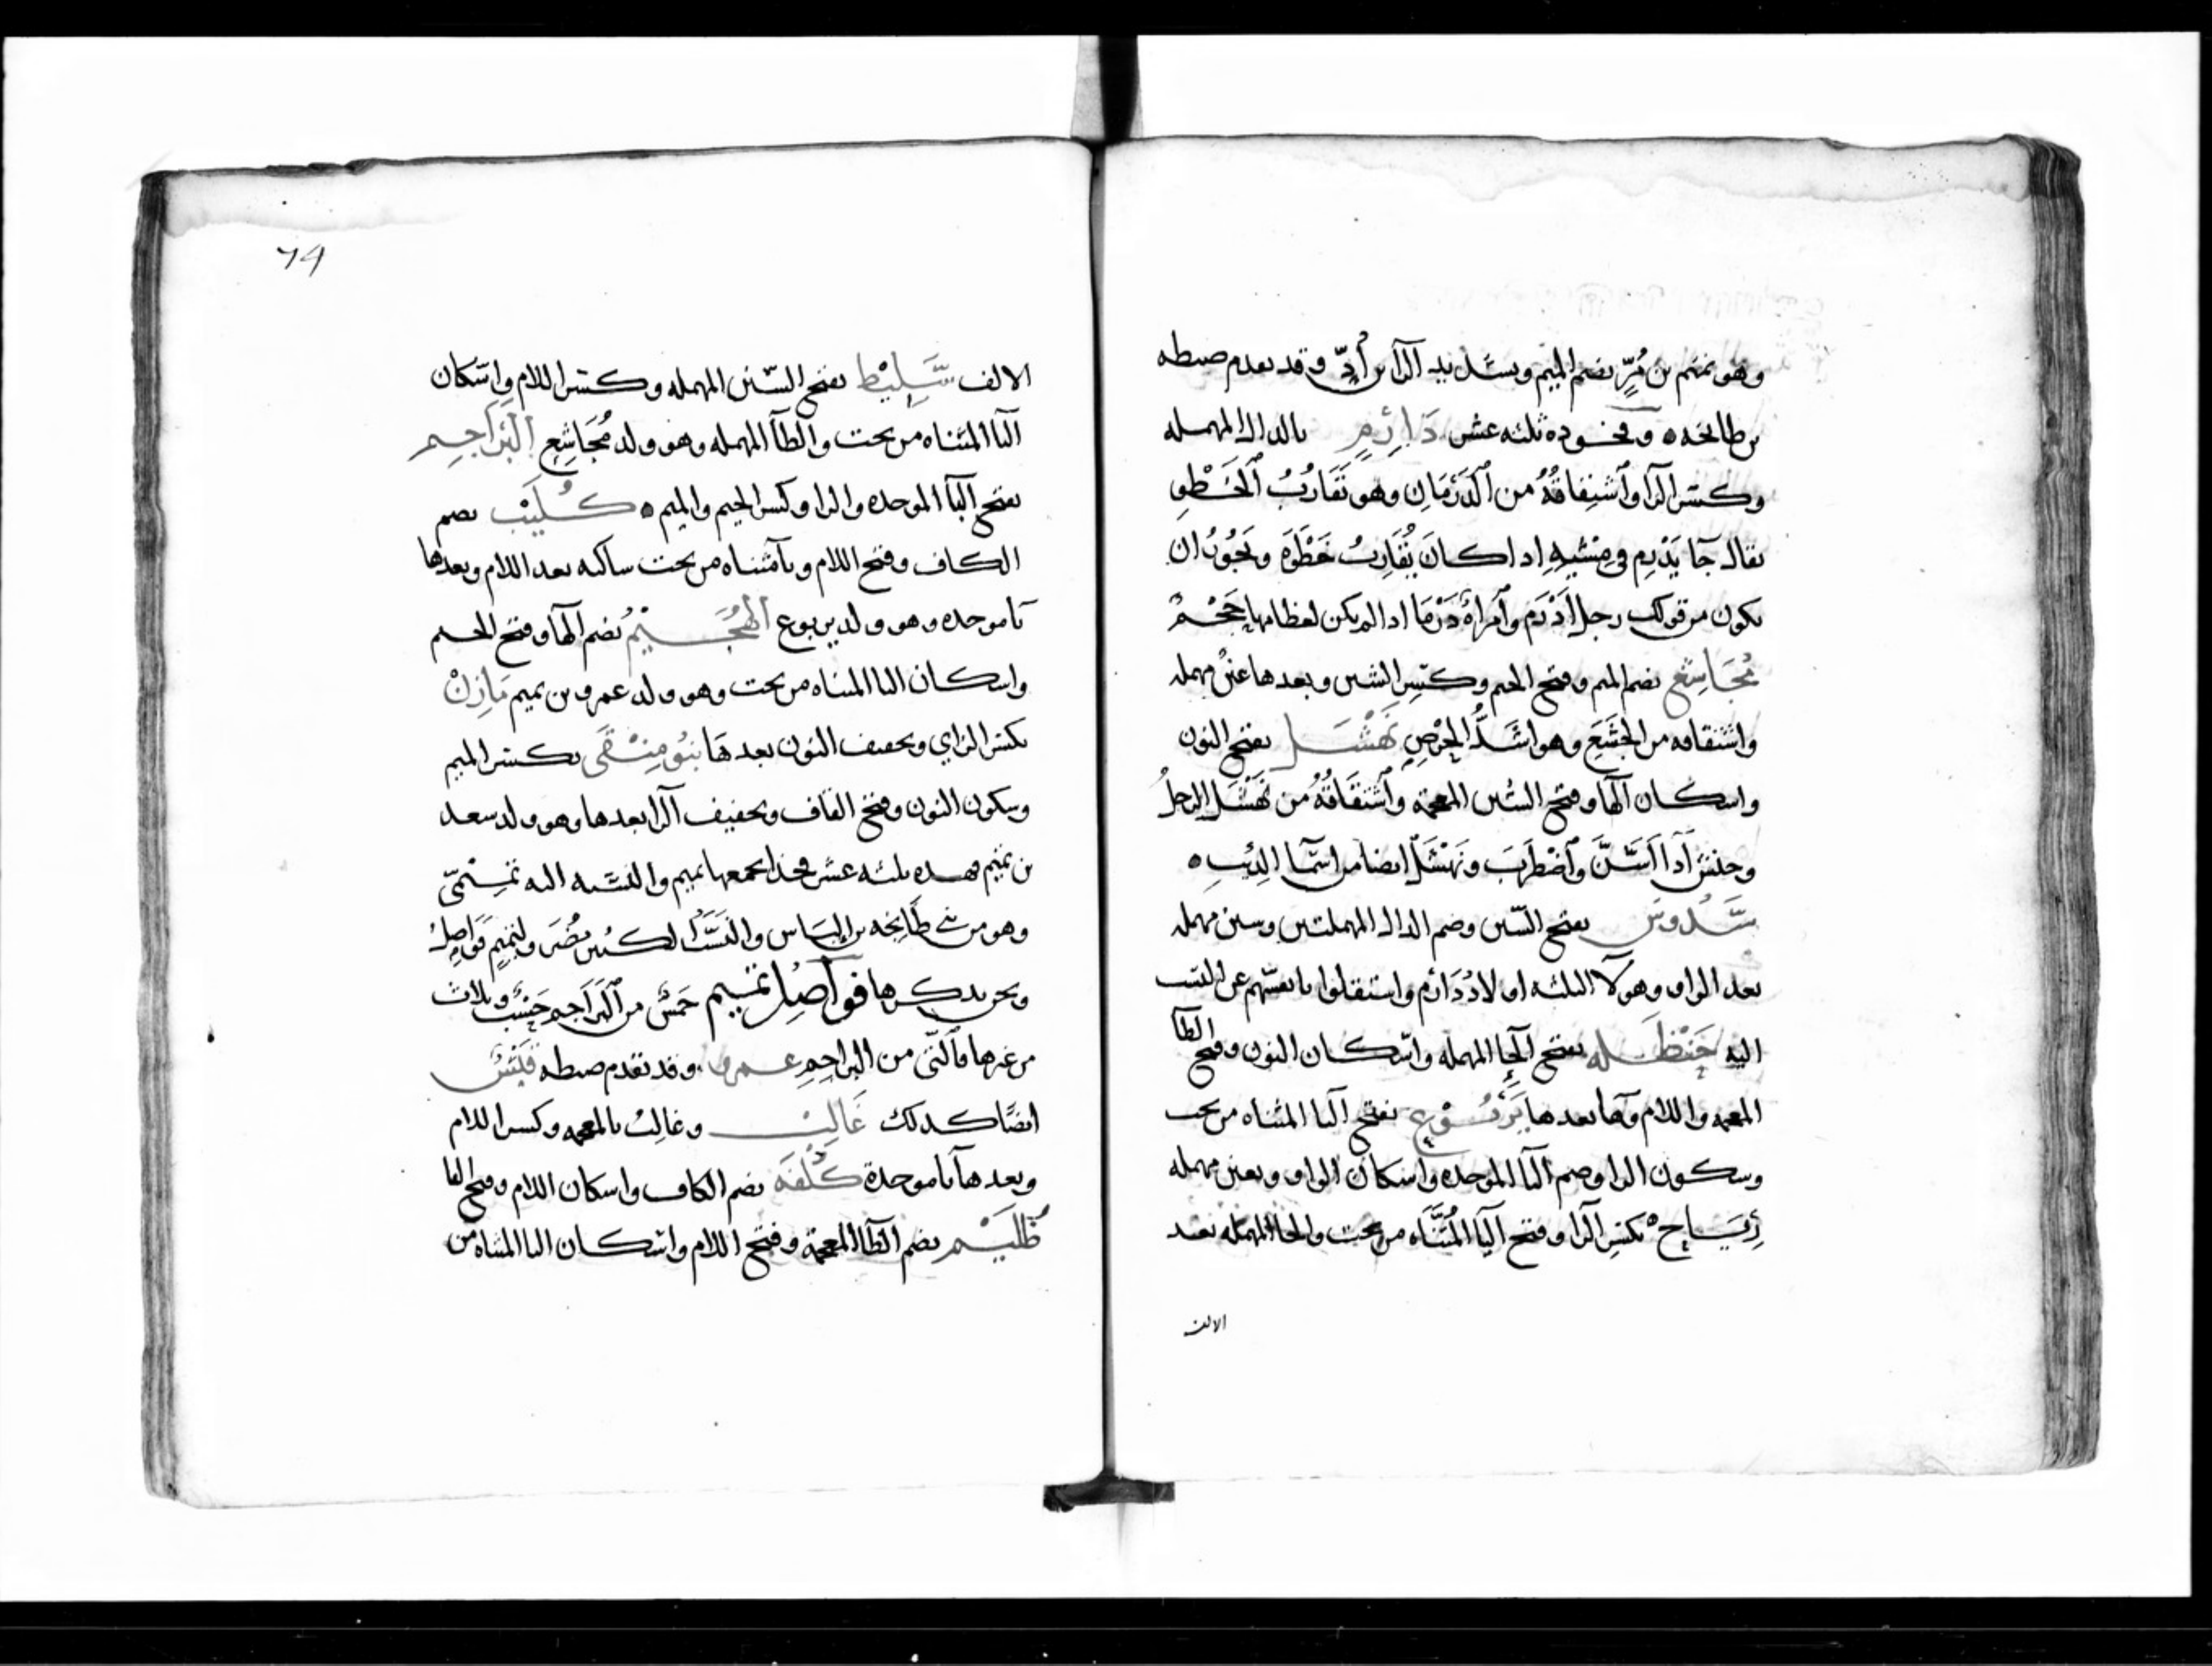 وهو تميم بن مُرّ بضم الميم وبتشديد الرآ بن أُدّ وقد تقدم ضبطه
بن طابخه ٥ وفخوذه ثلثه عشر دَارِم بالدال المهمله
وكسر الرآ وآشتقاقُهُ من آلدَرَمَانِ وهو تَقَارُبُ آلخَطْوِ
يقال جآ يَدْرِم في مشْيِهِ اذا كان يُقَارِبُ خَطْوَهُ ويَجُوزُ ان
يكون من قولك رجل أَدْرَم وآمرأةٌ دَرْمَا اذا لم يكن لعظامها حَجْمٌ
مُجَاشِع بضم الميم وفتح الجيم وكسر الشين وبعدها عين مهمله
واشتقاقه من الجَشَعِ وهو اشَدُّ الحِرْصِ نَهْشَل بفتح النون
واسكان الهآ وفتح الشين المعجمة وآشتقَاقُهُ من نَهْشَل الرجلُ
وحنش آذا آسَنَّ وآضْطَرَبَ ونَهْشَلٌ ايضا من اسمآ الذِئْبِ ٥
سَدُوس بفتح السّين وضم الدال المهملتين وسين مهمله
بعد الواو وهولآ الثلثه اولادُ دَارِم واستقلوا بانفسهم عن النسب
اليه حَنْظَله بفتح الحآ المهمله واسكان النون وفتح الظآ
المعجمه واللام وهآ بعدها يَرْبُوع بفتح اليا المثناه من تحت
وسكون الرا وضم البآ الموحده واسكان الواو وبعين مهمله
رِيَاح بكسر الرآ وفتح اليآ المُثَنَّاه من تحت والحآ المهمله بعد
الالف
74
الالف سَلِيْط بفتح السّين المهمله وكسر اللام واسكان
اليا المثناه من تحت والطآ المهمله وهو ولد مُجَاشِعِ آلبَرَاجِم
بفتح البآ الموحده والرا وكسر الجيم والميم ٥ كُلَيْب بضم
الكاف وفتح اللام ويآ مثناه من تحت ساكنه بعد اللام وبعدها
بآ موحده وهو ولد يربوع الهُجَيْمُ بضم الهآ وفتح الجيم
واسكان اليا المثناه من تحت وهو ولد عمرو بن تميم مَازِنْ
بكسر الزاي وتخفيف النون بعدهَا بنُو مِنْقَرى بكسر الميم
وسكون النون وفتح القاف وتخفيف الرآ بعدها وهو ولد سعد
بن تميم فهذه ثلثه عشر فخذا يجمعها تميم والنسبه اليه تَمِيْمِيّ
وهو من بني طَابِخه بن إليَاس والنَسَبُ لكبير مُضَر ولتميم فَوَاصِلُ
ونحن نذكرها فوآصِلُ تميم خَمسٌ من آلبَرَاجِم حَسْبُ وثلاث
من غيرها فآلتي من البراجِم عمرو وقد تقدم ضبطه قَيْسٌ
ايضًا كذلك غَالِب وغالِبٌ بالمعجمه وكسر اللام
وبعدهآ بآ موحدة كُلْفَه بضم الكاف واسكان اللام وفتح الفا
ظُلَيْم بضم الظآ المعجمة وفتح اللام واسكان اليا المثناه من